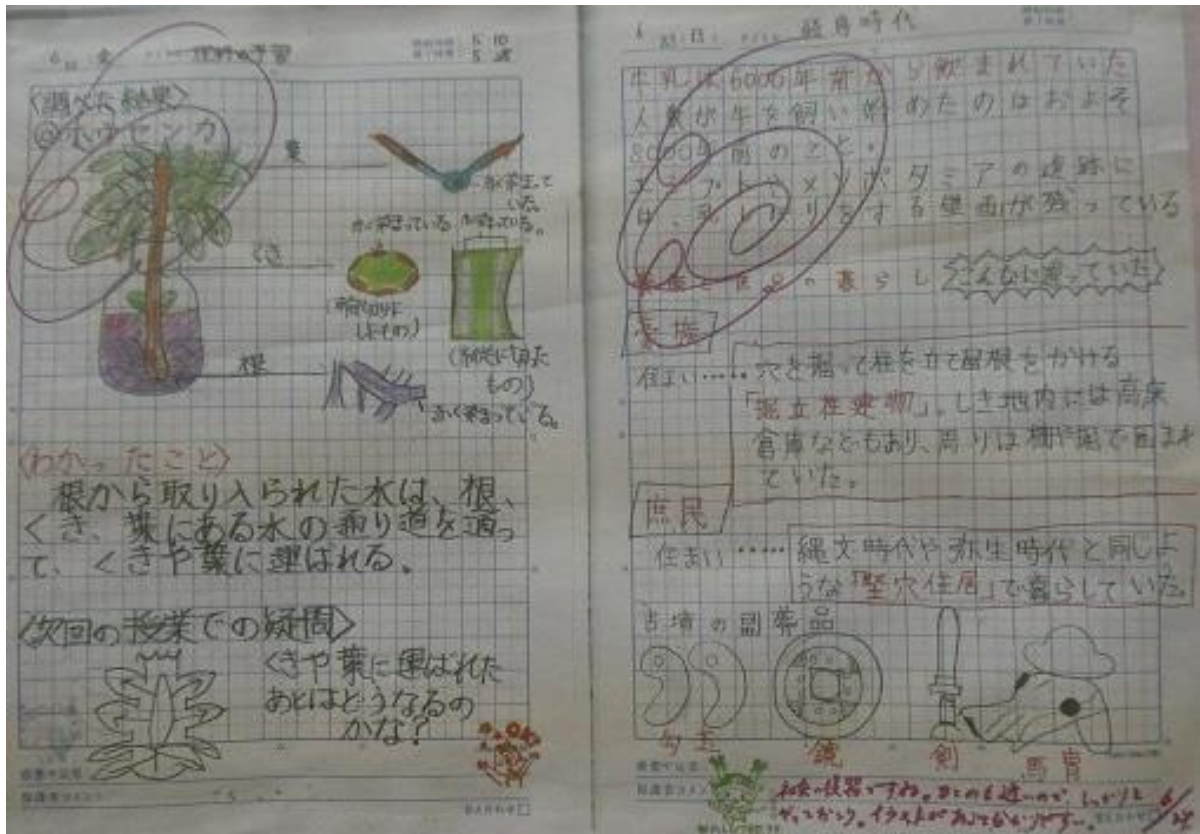 6 金 理科の予習
5 10
〈調べた結果〉
@ホウセンカ
葉
赤く染まって
いた。
赤く染まっている 赤く染まっている。
くき
(横切りに
したもの)
(縦に切った
もの)
根
赤く染まっている。
〈わかったこと〉
根から取り入られた水は、根、
くき、葉にある水の通り道を通っ
て、くきや葉に運ばれる。
〈次回の授業での疑問〉
くきや葉に運ばれた
あとはどうなるの
かな?
OK!
保護者コメント
時代
牛乳は6000年前から飲まれていた
人類が牛を飼い始めたのはおよそ
8000年前のこと。
エジプトやメソポタミアの遺跡に
は、乳しぼりをする壁画が残っている
豪族と庶民の暮らし こんなに違っていた
豪族
住まい……穴を掘って柱を立て屋根をかける
「掘立柱建物」。しき地内には高床
倉庫などもあり、周りは柵や堀で囲まれ
ていた。
庶民
住まい……縄文時代や弥生時代と同じよ
うな「竪穴住居」で暮らしていた。
古墳の副葬品
勾玉 鏡 剣 馬冑
保護者コメント